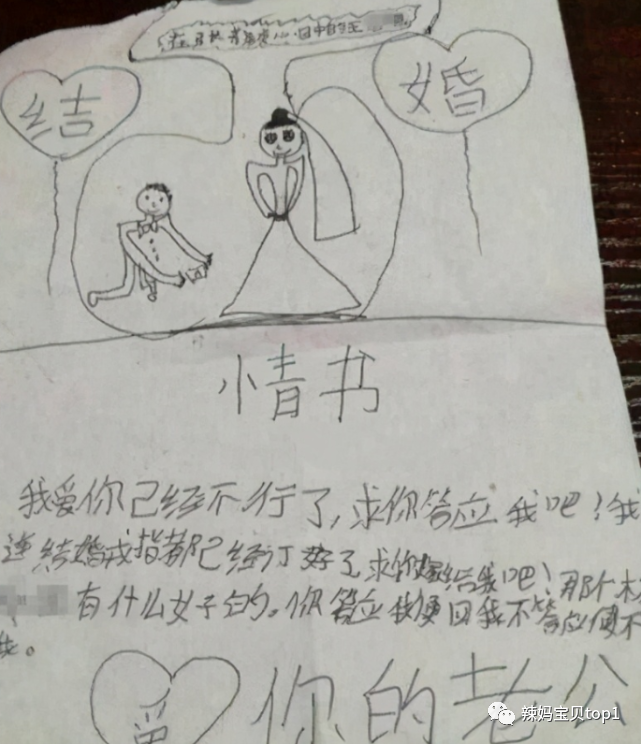 结 婚
小情书
我爱你已经不行了,求你答应我吧!我
连结婚戒指都已经订好了,求你嫁给我吧!那个
有什么女子的。你答应我便回我不答应便不
爱 你的老公
辣妈宝贝top1